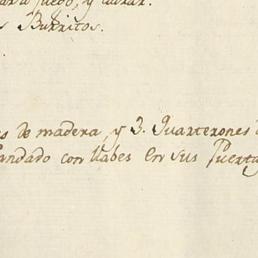 fuego, y
Burritos.
de madera, y 3. Quarterones
Candado con llabes en sus Puertas